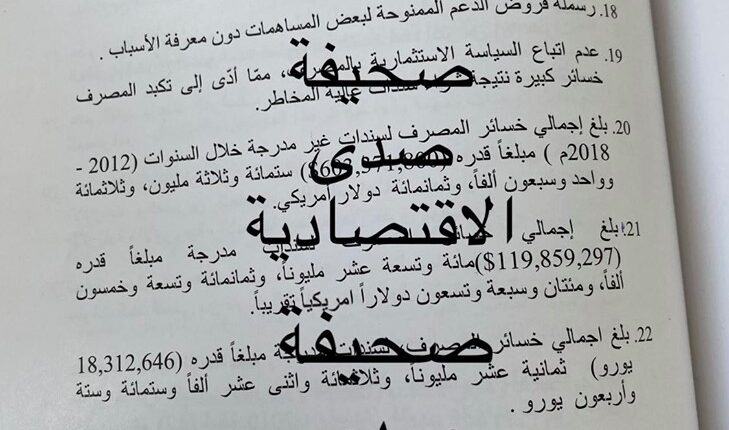 18. رسملة قروض الدعم الممنوحة لبعض المساهمات دون معرفة الأسباب .
19. عدم اتباع السياسة الاستثمارية ، ممّا أدّى إلى تكبد المصرف
خسائر كبيرة نتيجة سندات عالية المخاطر.
20. بلغ إجمالي خسائر المصرف لسندات غير مدرجة خلال السنوات (2012 -
2018م ) مبلغاً قدره ستمائة وثلاثة مليون، وثلاثمائة
وواحد وسبعون ألفاً، وثمانمائة دولار امريكي.
21. بلغ إجمالي لسندات مدرجة مبلغاً قدره
(119,859,297$)مائة وتسعة عشر مليوناً، وثمانمائة وتسعة وخمسون
ألفاً، ومئتان وسبعة وتسعون دولاراً امريكياً تقريباً.
22. بلغ اجمالي خسائر المصرف لسندات مبلغاً قدره (18,312,646
يورو) ثمانية عشر مليوناً، وثلاثمائة واثنى عشر ألفاً وستمائة وستة
وأربعون يورو .
صحيفة
صدى
الاقتصادية
صحيفة